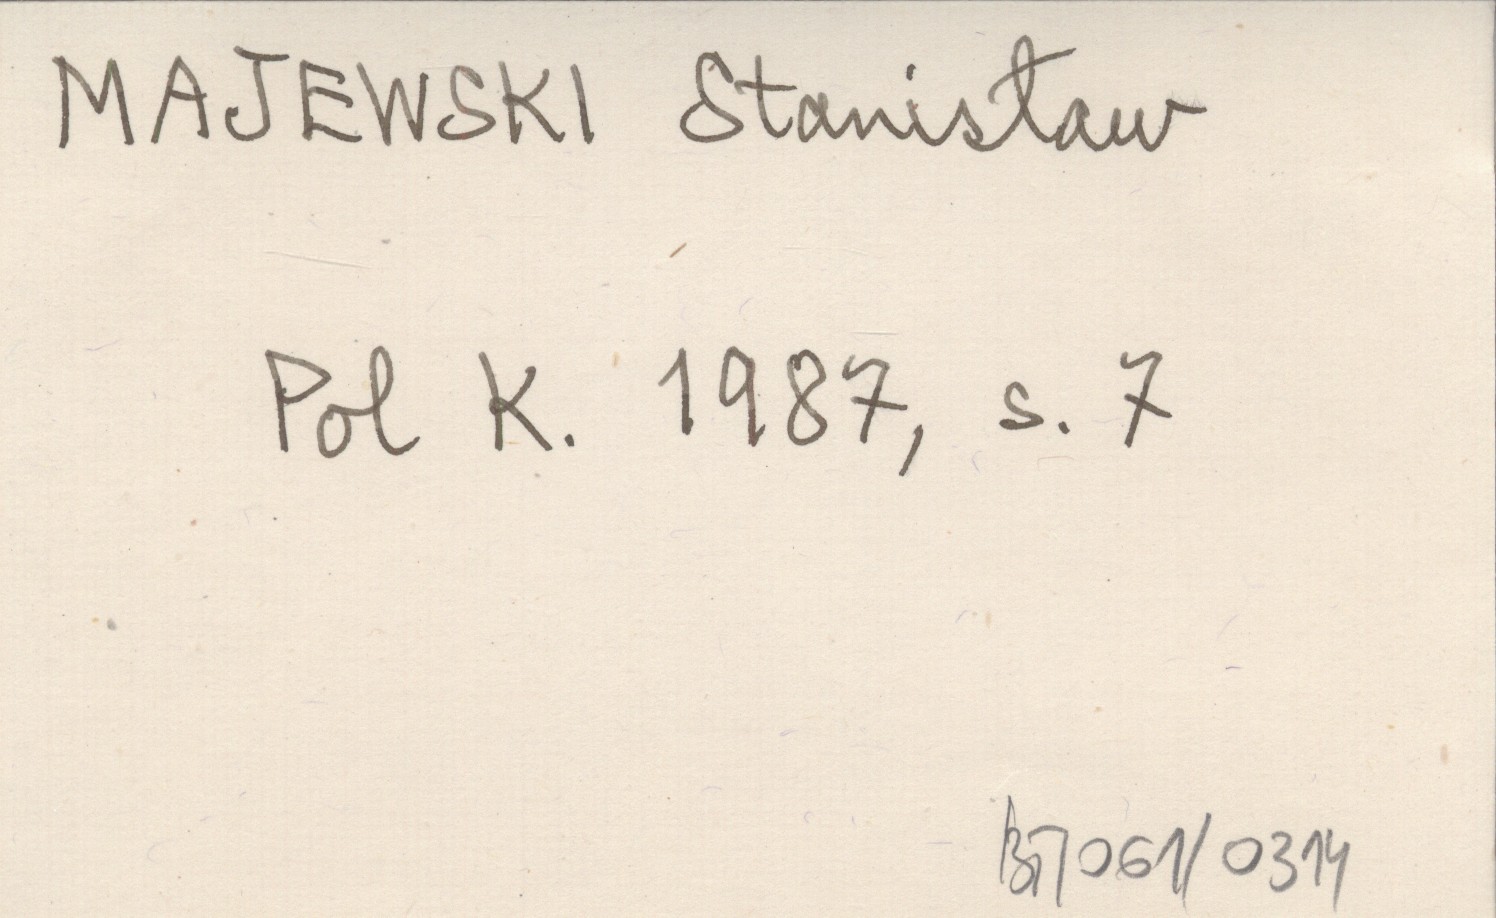 MAJEWSKI Stanisław
Pol K. 1987, s. 7
061/0314